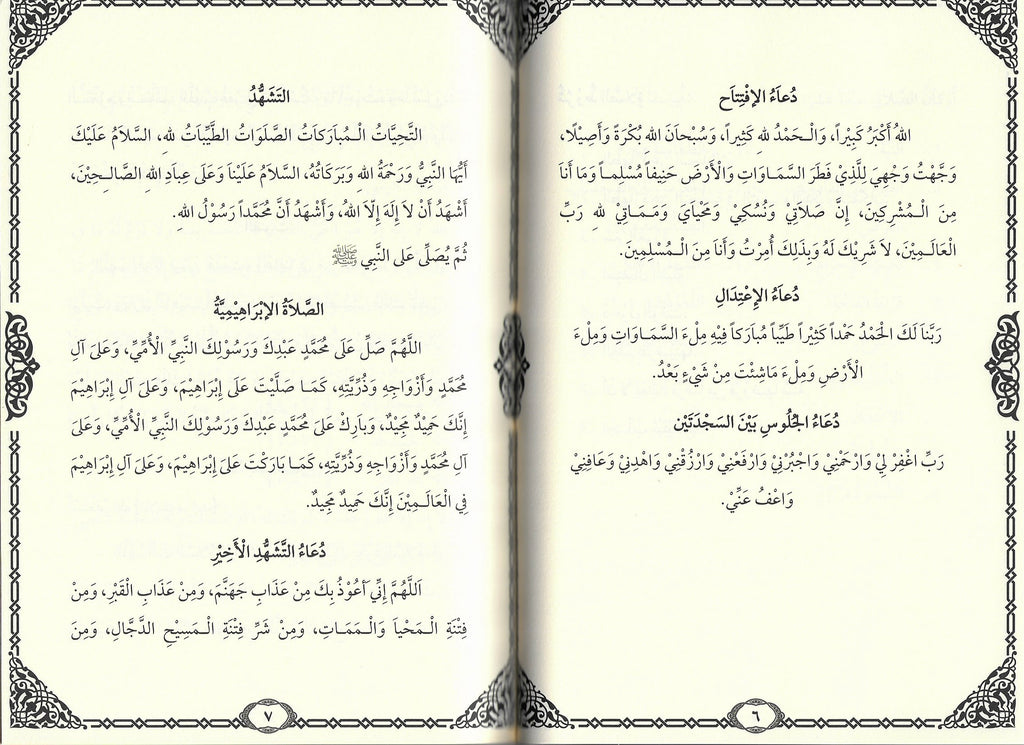 دُعَاءُ الإِفْتِتَاحِ
اللهُ أَكْبَرُ كَبِيْراً، وَالْحَمْدُ لِلهِ كَثِيْراً، وَسُبْحَانَ اللهِ بُكْرَةً وَأَصِيْلًا،
وَجَّهْتُ وَجْهِيَ لِلَّذِيْ فَطَرَ السَّمَاوَاتِ وَالْأَرْضَ حَنِيفاً مُسْلِماً وَمَا أَنَا
مِنَ الْمُشْرِكِينَ، إِنَّ صَلَاتِيْ وَنُسُكِيْ وَمَحْيَايَ وَمَمَاتِيْ لِلهِ رَبِّ
الْعَالَمِيْنَ، لَا شَرِيْكَ لَهُ وَبِذَلِكَ أُمِرْتُ وَأَنَا مِنَ الْمُسْلِمِينَ.
دُعَاءُ الإِعْتِدَالِ
رَبَّنَا لَكَ الْحَمْدُ حَمْداً كَثِيْراً طَيِّباً مُبَارَكاً فِيْهِ مِلْءَ السَّمَاوَاتِ وَمِلْءَ
الْأَرْضِ وَمِلْءَ مَاشِئْتَ مِنْ شَيْءٍ بَعْدُ.
دُعَاءُ الْجُلُوسِ بَيْنَ السَّجْدَتَيْنِ
رَبِّ اغْفِرْ لِيْ وَارْحَمْنِيْ وَاجْبُرْنِيْ وَارْفَعْنِيْ وَارْزُقْنِيْ وَاهْدِنِيْ وَعَافِنِيْ
وَاعْفُ عَنِّيْ.
٦
التَّشَهُّدُ
التَّحِيَّاتُ الْمُبَارَكَاتُ الصَّلَوَاتُ الطَّيِّبَاتُ لِلهِ، السَّلَامُ عَلَيْكَ
أَيُّهَا النَّبِيُّ وَرَحْمَةُ اللهِ وَبَرَكَاتُهُ، السَّلَامُ عَلَيْنَا وَعَلَى عِبَادِ اللهِ الصَّالِحِيْنَ،
أَشْهَدُ أَنْ لَا إِلَهَ إِلَّا اللهُ، وَأَشْهَدُ أَنَّ مُحَمَّداً رَسُوْلُ اللهِ.
ثُمَّ يُصَلِّي عَلَى النَّبِي ﷺ
الصَّلَاةُ الإِبْرَاهِيْمِيَّةُ
اللَّهُمَّ صَلِّ عَلَى مُحَمَّدٍ عَبْدِكَ وَرَسُوْلِكَ النَّبِيِّ الْأُمِّيِّ، وَعَلَى آلِ
مُحَمَّدٍ وَأَزْوَاجِهِ وَذُرِّيَّتِهِ، كَمَا صَلَّيْتَ عَلَى إِبْرَاهِيْمَ، وَعَلَى آلِ إِبْرَاهِيْمَ
إِنَّكَ حَمِيْدٌ مَجِيْدٌ، وَبَارِكْ عَلَى مُحَمَّدٍ عَبْدِكَ وَرَسُوْلِكَ النَّبِيِّ الْأُمِّيِّ، وَعَلَى
آلِ مُحَمَّدٍ وَأَزْوَاجِهِ وَذُرِّيَّتِهِ، كَمَا بَارَكْتَ عَلَى إِبْرَاهِيْمَ، وَعَلَى آلِ إِبْرَاهِيْمَ
فِي الْعَالَمِيْنَ إِنَّكَ حَمِيدٌ مَجِيدٌ.
دُعَاءُ التَّشَهُّدِ الْأَخِيْرِ
اَللَّهُمَّ إِنِّي أَعُوْذُ بِكَ مِنْ عَذَابِ جَهَنَّمَ، وَمِنْ عَذَابِ الْقَبْرِ، وَمِنْ
فِتْنَةِ الْمَحْيَا وَالْمَمَاتِ، وَمِنْ شَرِّ فِتْنَةِ الْمَسِيْحِ الدَّجَّالِ، وَمِنَ
٧